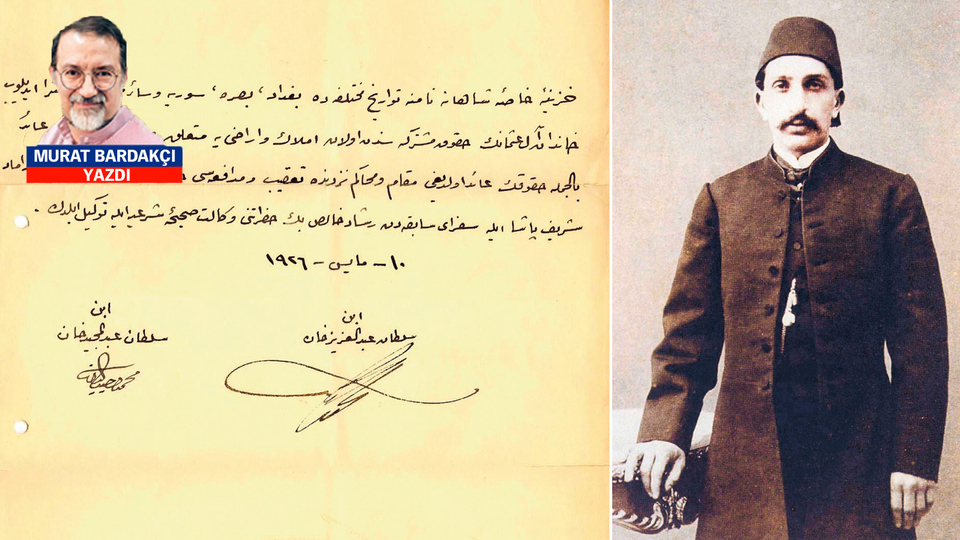 MURAT BARDAKÇI
YAZDI
خزینهٔ خاصهٔ شاهانه نامنه تواریخ مختلفه ده بغداد، بصره، سوریه
خاندان آل عثمانك حقوق مشتركه سندن اولان املاك واراضی یه متعلق عائد
بالجمله حقوقك عائد اولدیغی مقام ومحاكم نزدنده تعقیب ومدافعه سی
شریف پاشا ایله سفرای سابقه دن رشاد خالص بك حضراتنی وكالت صحیحهٔ شرعیه ایله توكیل ایلدك.
١٠ – مایس – ١٩٢٦
ابن
سلطان عبدالعزیز خان
ابن
سلطان عبدالمجید خان